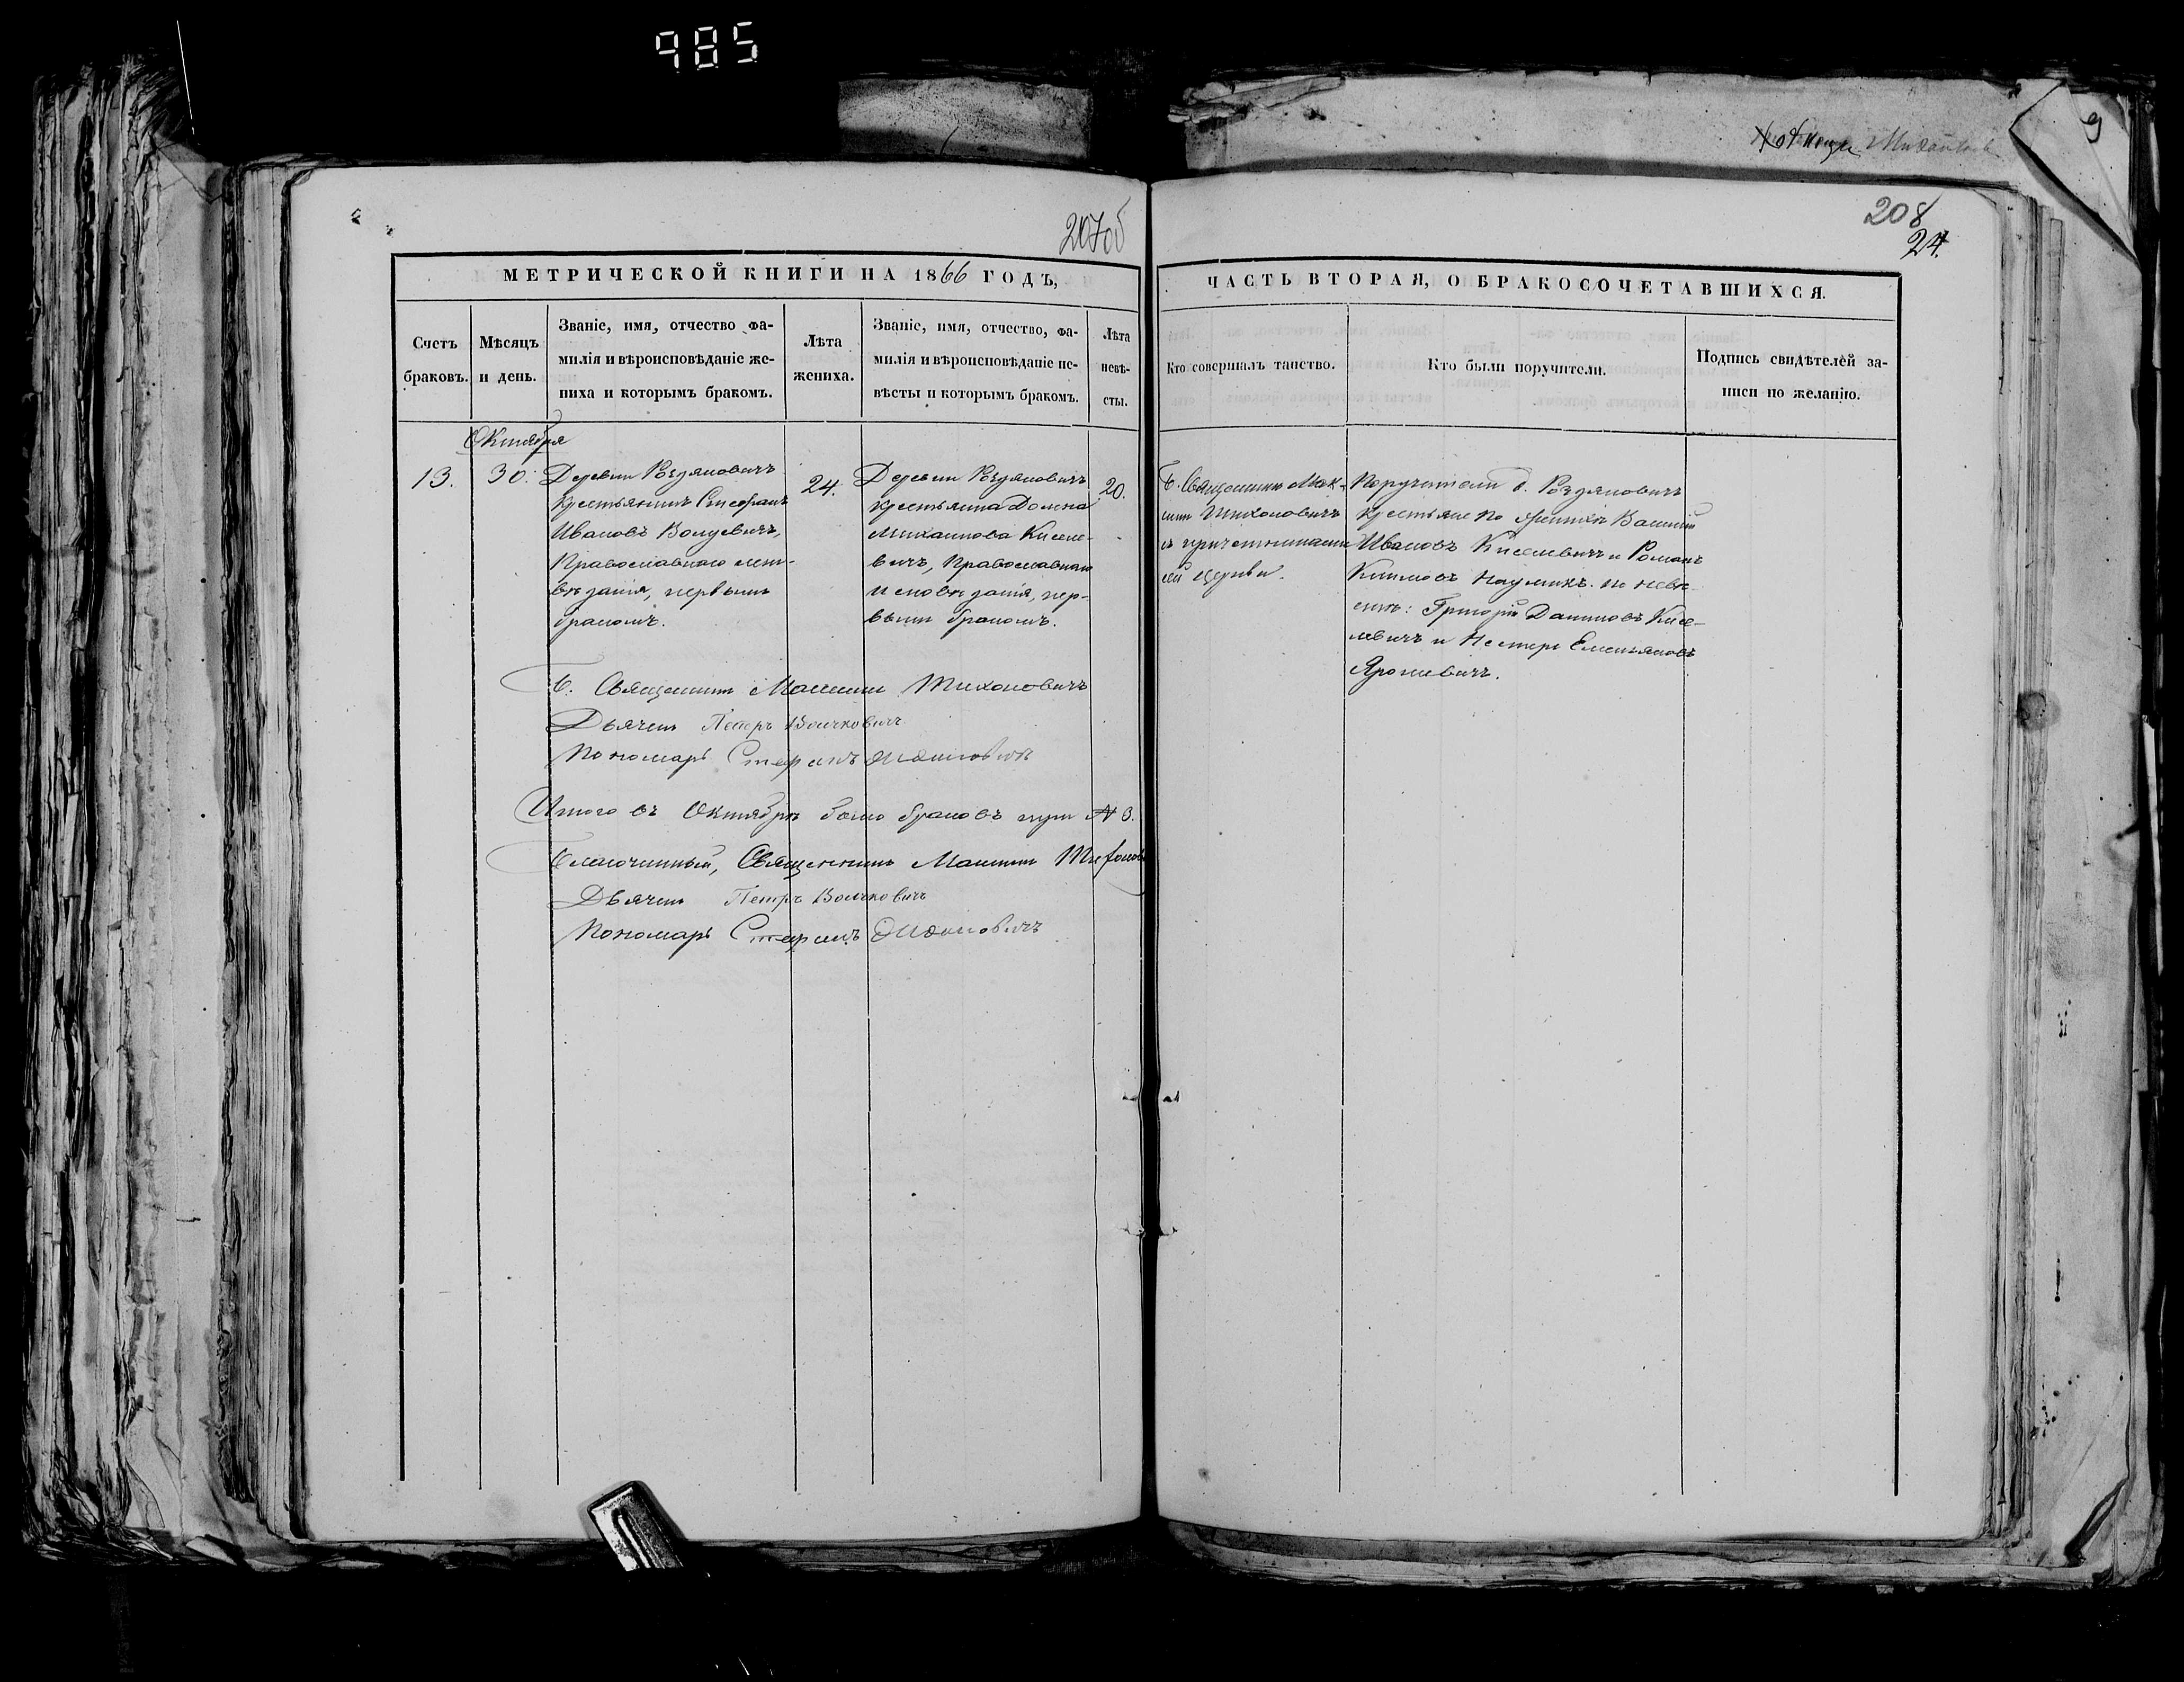 985
207об
208
24.
МЕТРИЧЕСКОЙ КНИГИ НА 1866 ГОДЪ,
Счетъ браковъ.
Мѣсяцъ и день.
Званіе, имя, отчество фа-
милія и вѣроисповѣданіе же-
ниха и которымъ бракомъ.
Лѣта жениха.
Званіе, имя, отчество, фа-
милія и вѣроисповѣданіе не-
вѣсты и которымъ бракомъ.
Лѣта невѣ-
сты.
Октября
13.
30.
Деревни Роздяловичъ
крестьянинъ Стефанъ
Ивановъ
Православнаго испо-
вѣданія, первымъ
бракомъ.
24.
Деревни Роздяловичъ
крестьянка Домна
Михаилова Кисле-
вичъ, Православнаго
исповѣданія, пер-
вымъ бракомъ.
20.
Б. Священникъ Максимъ Тихоновичъ
Дьячекъ Петръ Волчковичъ
Пономарь Стефанъ
Итого въ Октябрѣ было браковъ три № 3.
Благочинный, Священникъ Максимъ
Дьячекъ Петръ Волчковичъ
Пономарь Стефанъ
ЧАСТЬ ВТОРАЯ, О БРАКОСОЧЕТАВШИХСЯ.
Кто совершалъ таинство.
Кто были поручители.
Подпись свидѣтелей за-
писи по желанію.
Б. Священникъ Мак-
симъ Тихоновичъ
съ причетниками
сей церкви.
Поручители д. Роздяловичъ
крестьяне по женихѣ Василій
Ивановъ Киселевичъ и Романъ
Климовъ Наумикъ. по невѣ-
стѣ: Григорій Даниловъ Кисе-
левичъ и Нестеръ Емельяновъ